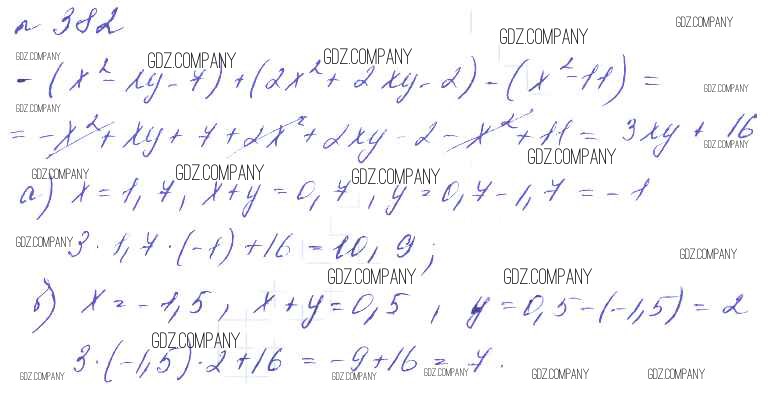 № 382
GDZ.COMPANY
GDZ.COMPANY GDZ.COMPANY GDZ.COMPANY GDZ.COMPANY
- (x² - xy - 7) + (2x² + 2xy - 2) - (x² - 11) =
GDZ.COMPANY
GDZ.COMPANY
= -x² + xy + 7 + 2x² + 2xy - 2 - x² + 11 = 3xy + 16
GDZ.COMPANY GDZ.COMPANY
GDZ.COMPANY GDZ.COMPANY GDZ.COMPANY
а) x = 1,7, x + y = 0,7, y = 0,7 - 1,7 = -1
GDZ.COMPANY GDZ.COMPANY
3 · 1,7 · (-1) + 16 = 10,9;
GDZ.COMPANY GDZ.COMPANY
б) x = -1,5, x + y = 0,5, y = 0,5 - (-1,5) = 2
GDZ.COMPANY
3 · (-1,5) · 2 + 16 = -9 + 16 = 7.
GDZ.COMPANY GDZ.COMPANY GDZ.COMPANY GDZ.COMPANY GDZ.COMPANY